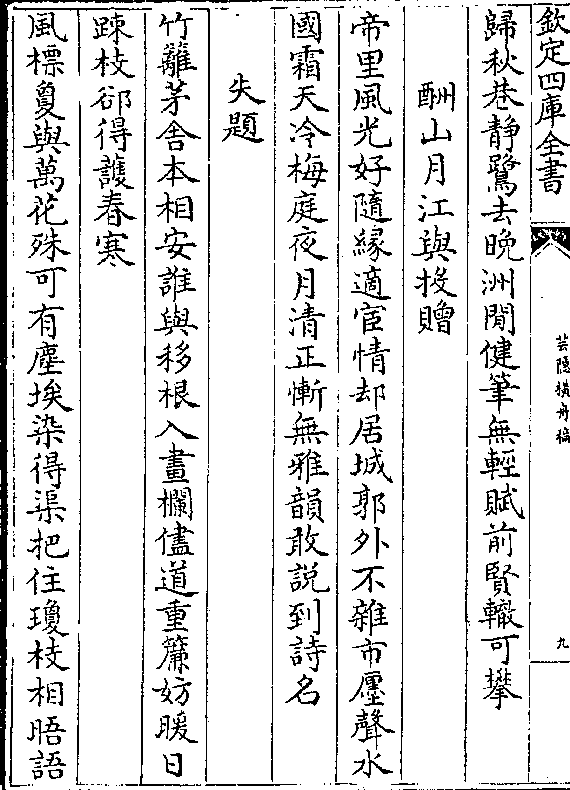 欽定四庫全書
芸隱橫舟稿
九
歸秋巷静鷺去晩洲閒健筆無輕賦前賢轍可攀
酬山月江與投贈
帝里風光好隨緣適宦情却居城郭外不雜市廛聲水
國霜天冷梅庭夜月清正慚無雅韻敢説到詩名
失題
竹籬茅舍本相安誰與移根入畫欄儘道重簾妨暖日
踈枝郤得護春寒
風標敻與萬花殊可有塵埃染得渠把住瓊枝相晤語